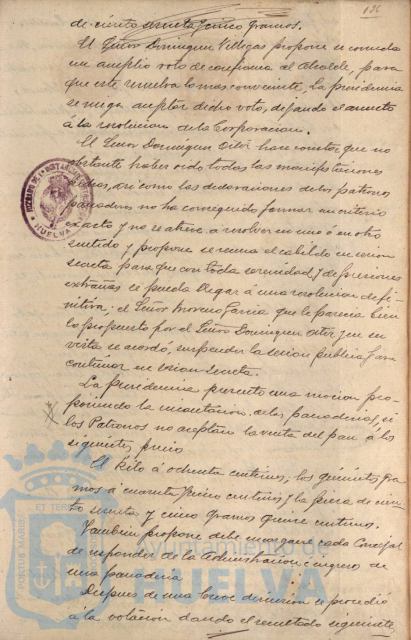 136
de ciento sesenta y cinco gramos.
El Señor Dominguez Villegas propone se conceda
un amplio voto de confianza al Alcalde, para
que este resuelva lo mas conveniente, La presidencia
se niega aceptar dicho voto, dejando el asunto
á la resolucion de la Corporacion.
El Señor Dominguez Ortiz hace constar que no
obstante haber oido todas las manifestaciones
hechas, asi como las declaraciones de los patronos
panaderos no ha conseguido formar un criterio
exacto y no se atreve a resolver en uno ó en otro
sentido y propone se reuna el cabildo en sesion
secreta para que con toda serenidad, y sin presiones
extrañas se pueda llegar á una resolucion defi-
nitiva; el Señor Moreno Garcia que le parecia bien
lo propuesto por el Señor Dominguez Ortiz, y en su
vista se acordó, suspender la sesion publica para
continuar en sesion secreta.
La presidencia presento una mocion pro-
poniendo la incautacion de las panaderias, si
los Patronos no aceptan la venta del pan á los
siguientes precios
El kilo á ochenta centimos; los quinientos gra-
mos á cuarenta y cinco centimos y la pieza de cien-
to sesenta y cinco gramos quince centimos.
Tambien propone debe encargarse cada Concejal
de responder de la Administracion e ingreso de
una panaderia
Despues de una breve discusion se procedió
á la votacion dando el resultado siguiente
JUZGADO DE 1ª INSTANCIA
HUELVA
PORTUS MARIS ET TERRAE
Ayuntamiento de
HUELVA